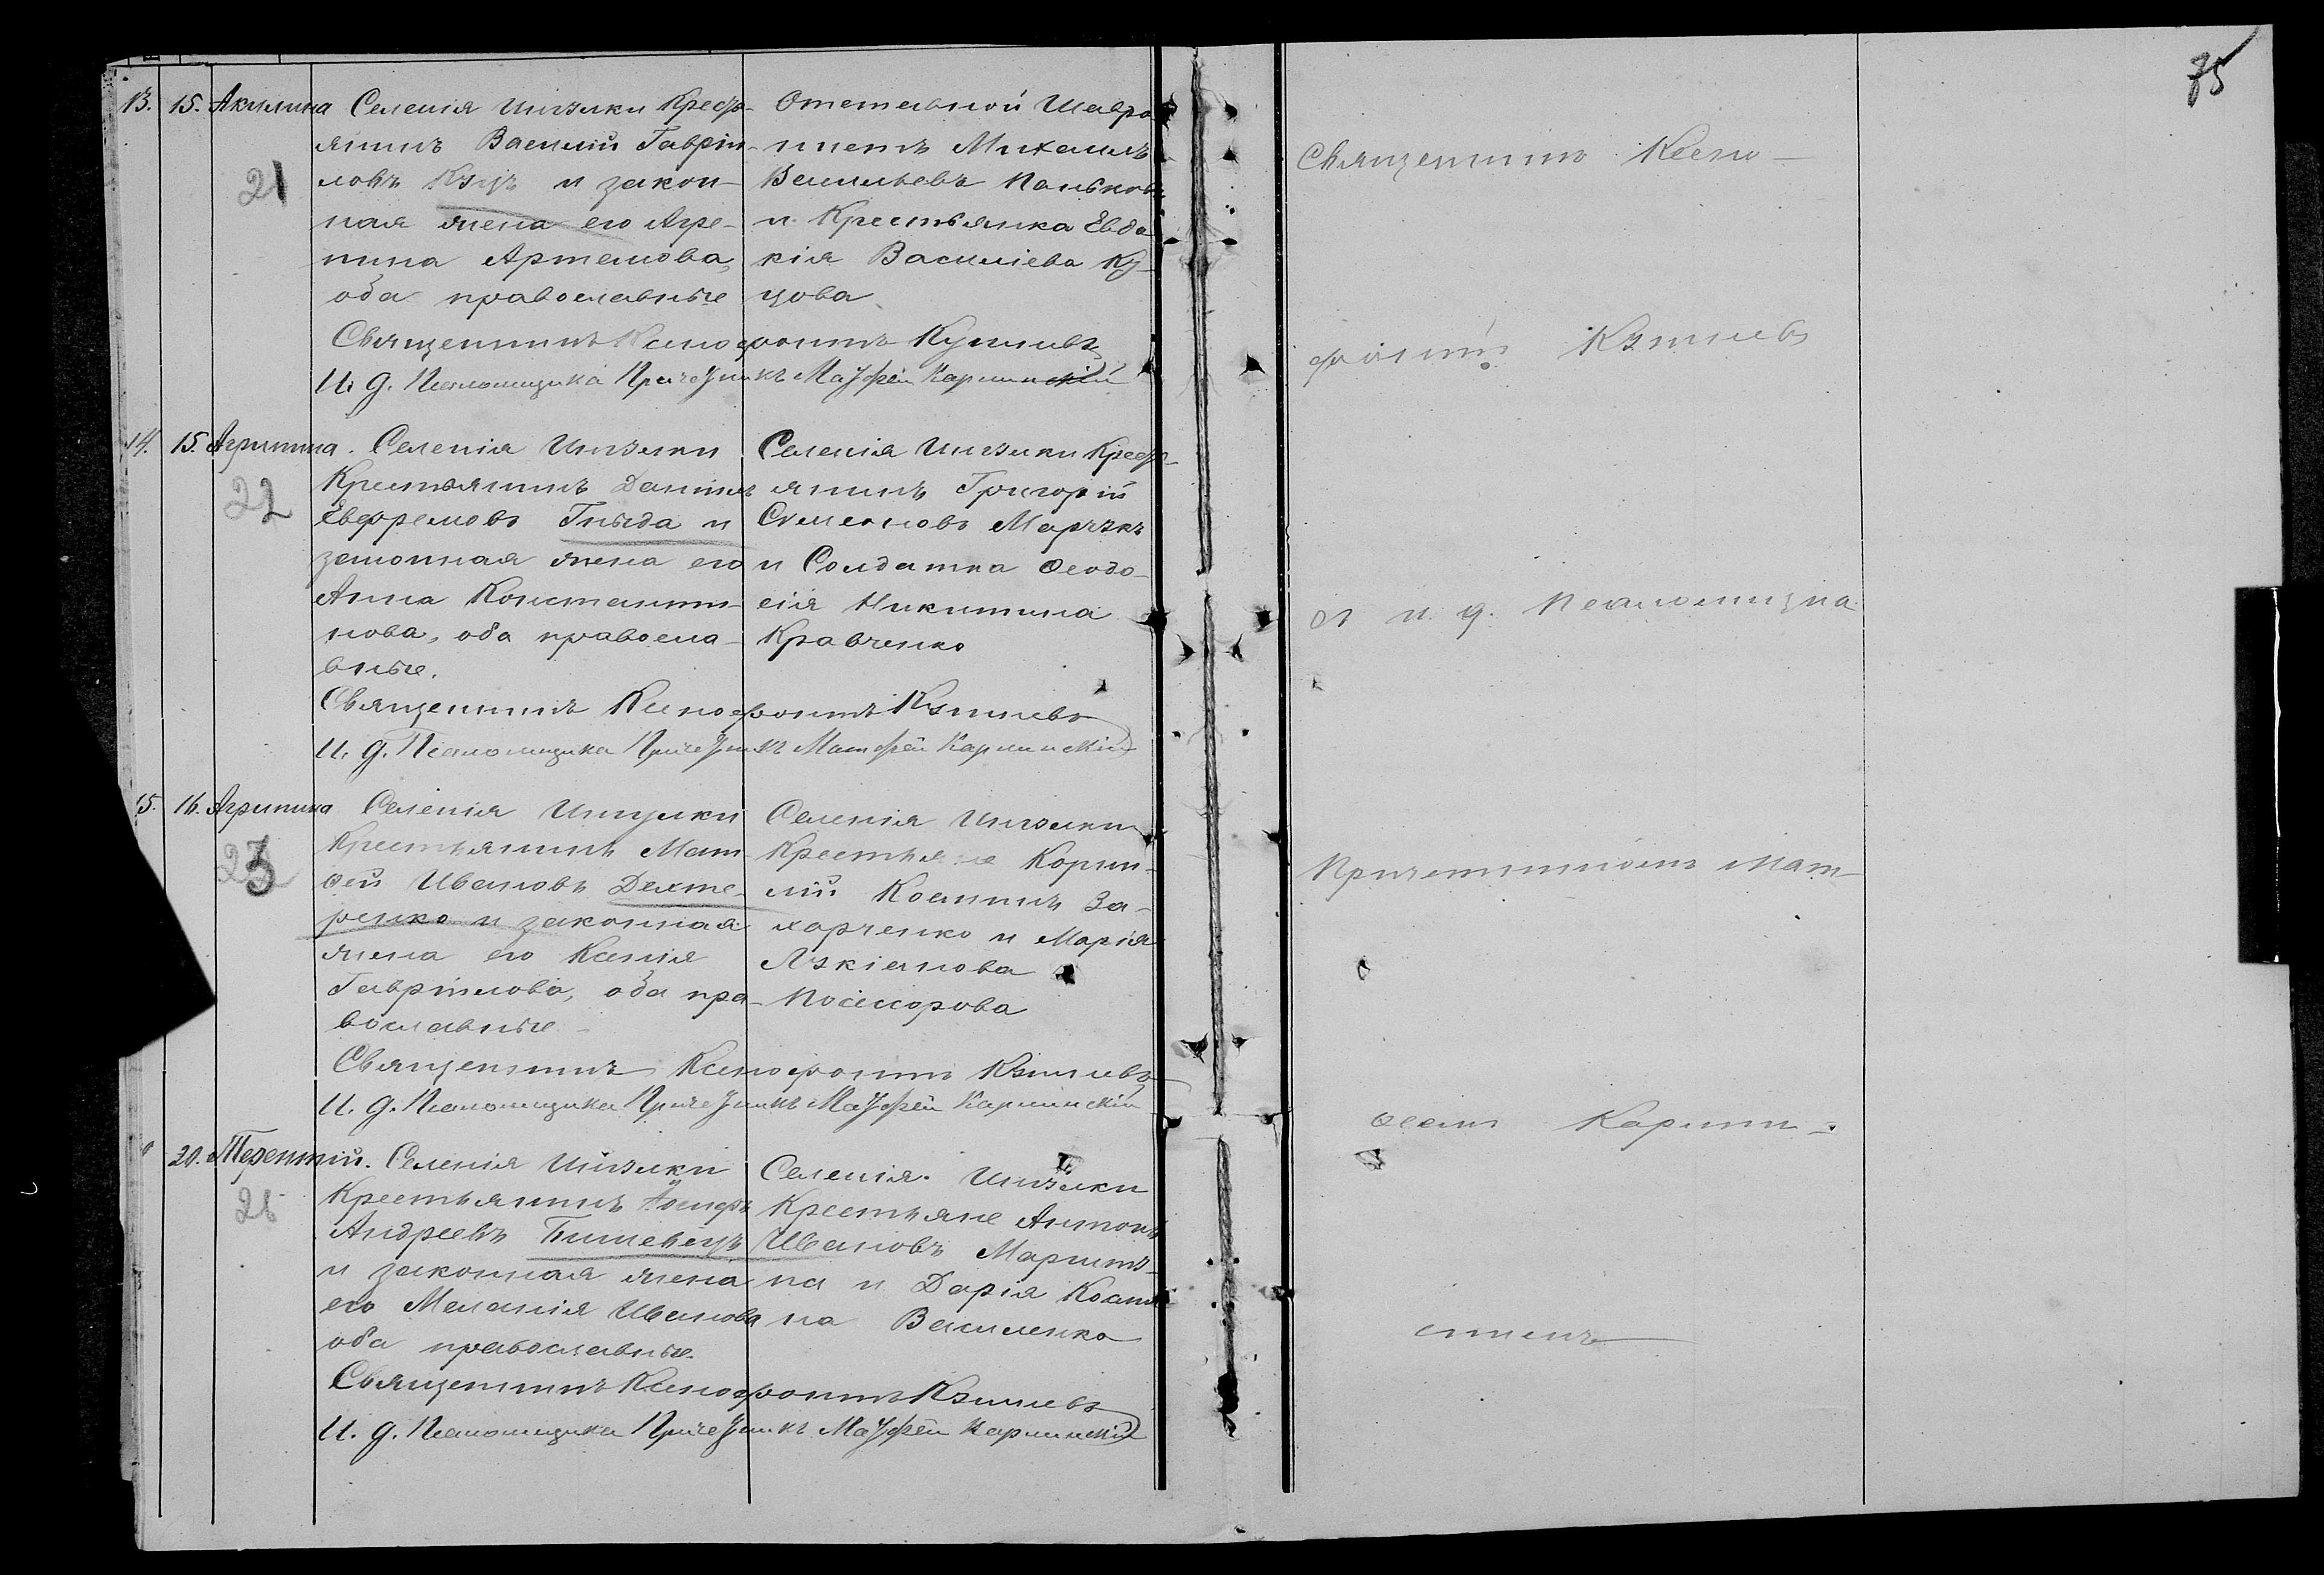 75
13. 15. Акилина Селенія Ингулки Крестьянинъ
янинъ Василій Гаврiи-
ловъ Куцъ и закон-
ная жена его Агре-
пина Артемова,
оба православные
21
Отставной
Михаилъ
Васильевъ
и Крестьянка Евдо
кія Василіева Ку-
цова
Священникъ Ксенофонтъ
И. д. Псаломщика Причетникъ Матфей Карпинскій
14. 15. Агрипина. Селенія Ингулки
Крестьянинъ Даніилъ
Евфремовъ Гнида и
законная жена его
Анна Константи-
нова, оба правосла-
вные.
22
Селенія Ингулки Крест-
янинъ Григорій
Симеоновъ
и Солдатка Ѳеодо-
сія Никитина
Кравченко
Священникъ Ксенофонтъ
И. д. Псаломщика Причетникъ Матфей Карпинскій
15. 16. Агрипина Селенія Ингулки
Крестьянинъ Мат-
ѳей Ивановъ Дехте-
ренко и законная
жена его Ксенія
Гавріилова, оба пра-
вославные
23
Селенія Ингулки
Крестьяне Корни-
лій За-
харченко и Марія
Лукіанова
Священникъ Ксенофонтъ
И. д. Псаломщика Причетникъ Матфей Карпинскій
20. Терентій. Селенія Ингулки
Крестьянинъ Іосифъ
Андреевъ
и законная жена
его Меланія Иванова
оба православные.
Селенія Ингулки
Крестьяне Антонъ
Ивановъ
на и Дарія
на Василенко
Священникъ Ксенофонтъ
И. д. Псаломщика Причетникъ Матфей Карпинскій
Священникъ Ксено-
фонтъ
и. д. Псаломщика
Причетникомъ Мат-
ѳеемъ Карпин-
скимъ